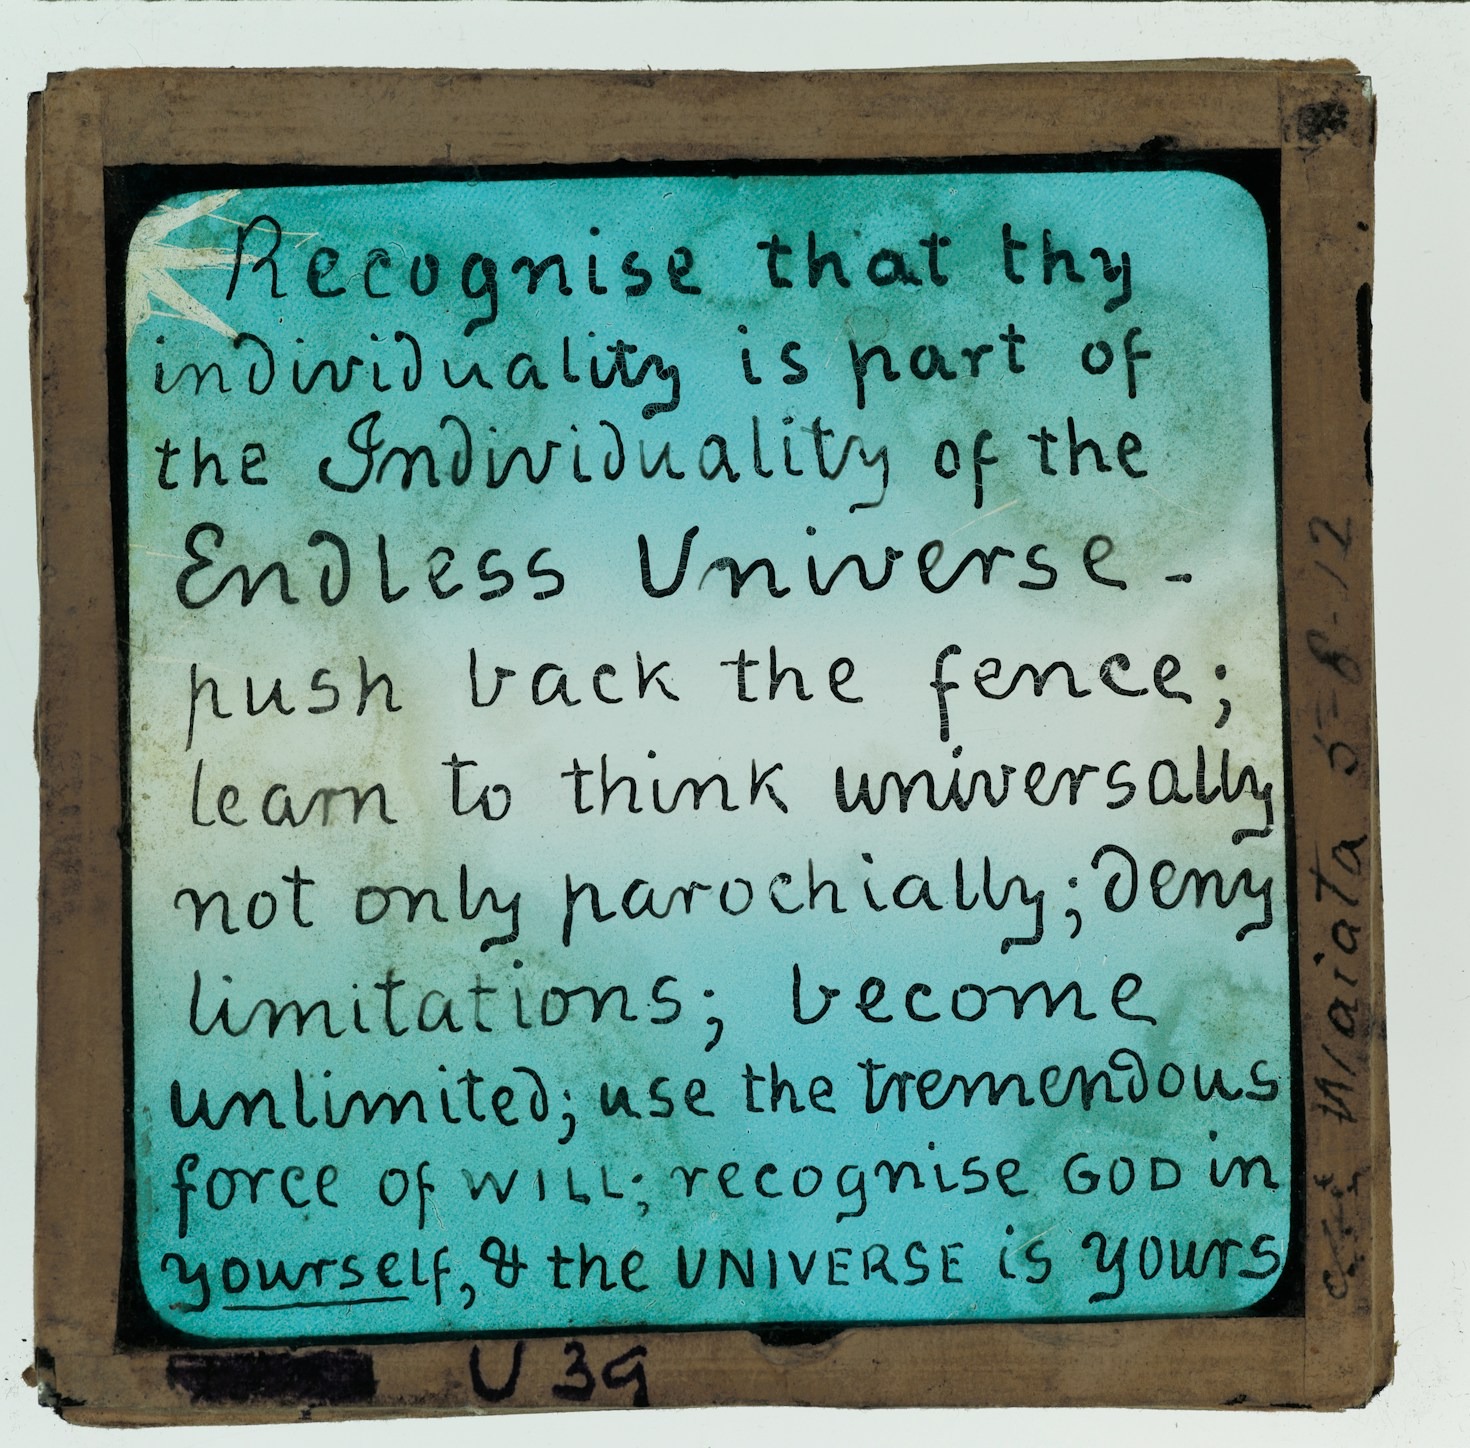 Recognise that thy
individuality is part of
the Individuality of the
Endless Universe -
push back the fence;
learn to think universally
not only parochially; deny
limitations; become
unlimited; use the tremendous
force of WILL; recognise GOD in
yourself, & the UNIVERSE is yours
U 39
Maiata 5-8-12